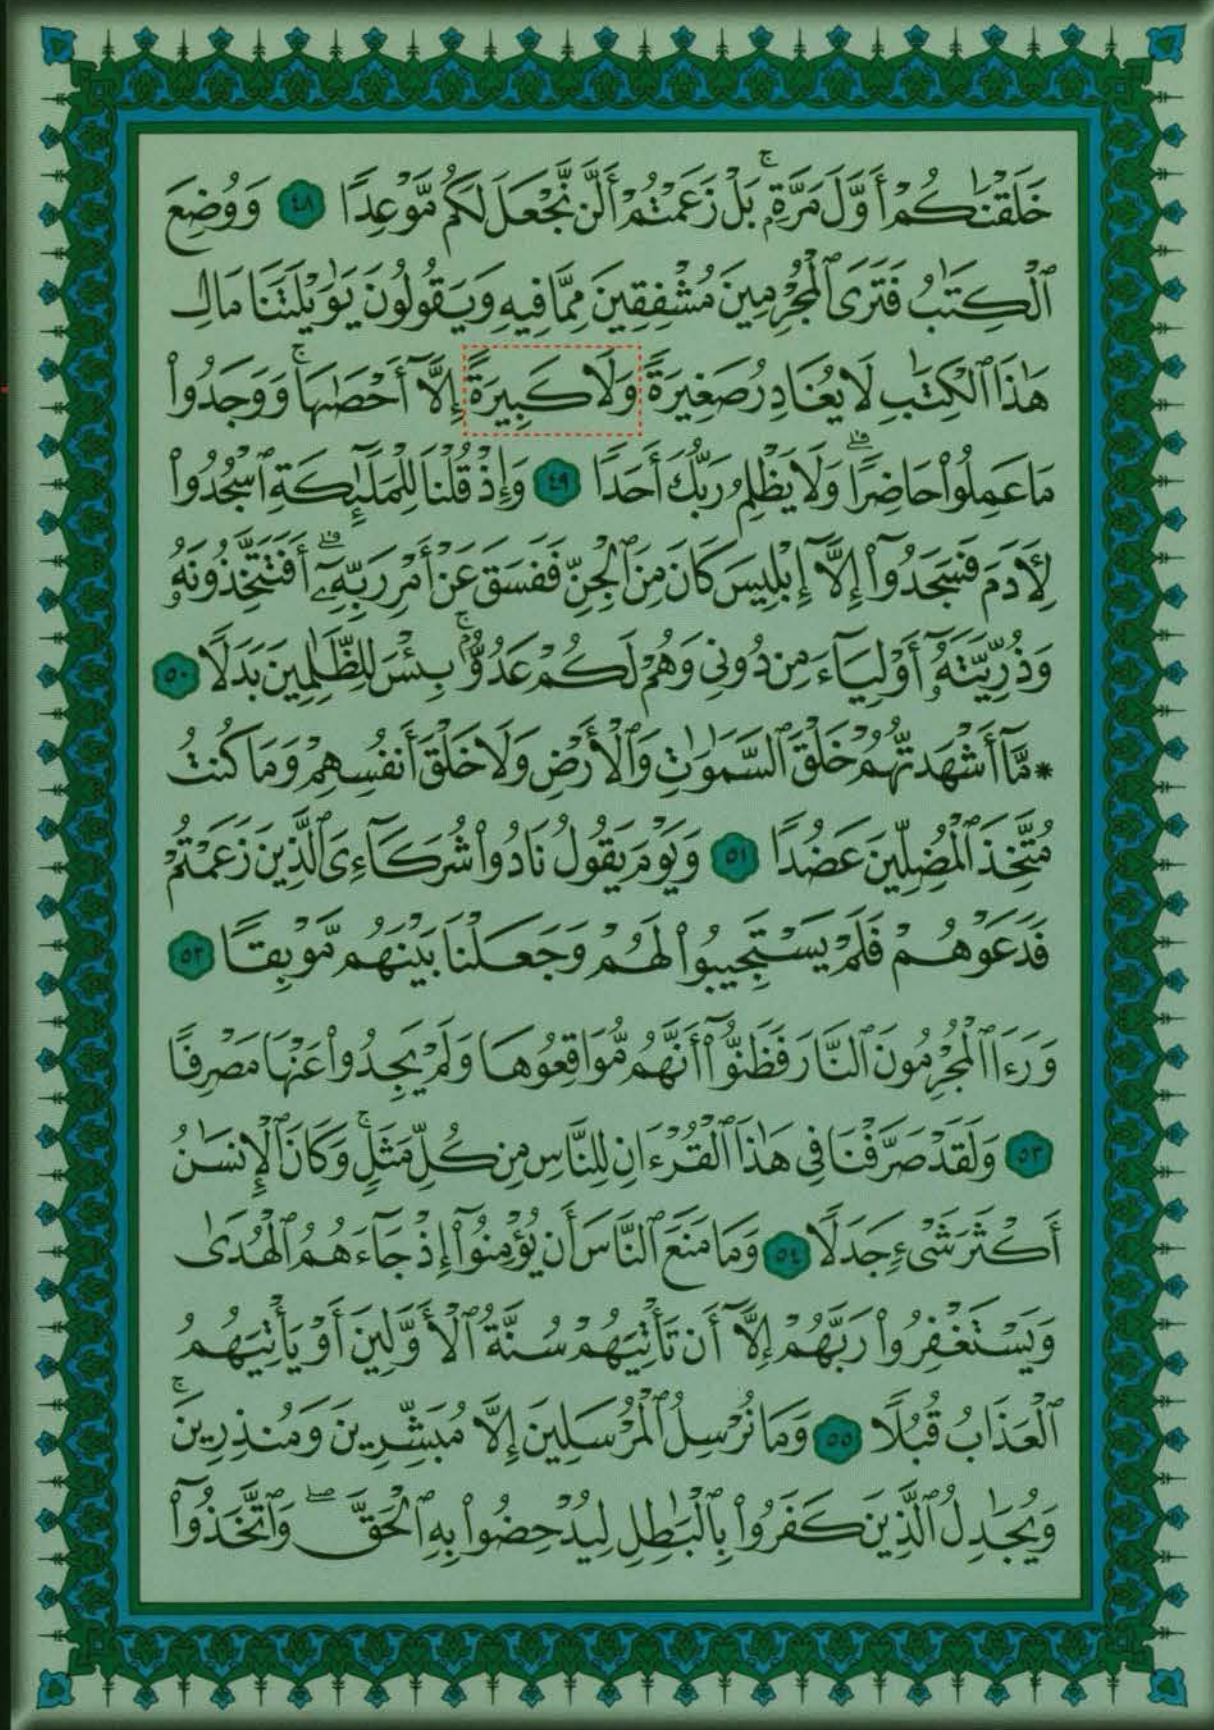 خَلَقْنَٰكُمْ أَوَّلَ مَرَّةٍۭ ۚ بَلْ زَعَمْتُمْ أَلَّن نَّجْعَلَ لَكُم مَّوْعِدًا ٤٨ وَوُضِعَ
ٱلْكِتَٰبُ فَتَرَى ٱلْمُجْرِمِينَ مُشْفِقِينَ مِمَّا فِيهِ وَيَقُولُونَ يَٰوَيْلَتَنَا مَالِ
هَٰذَا ٱلْكِتَٰبِ لَا يُغَادِرُ صَغِيرَةً وَلَا كَبِيرَةً إِلَّآ أَحْصَىٰهَا ۚ وَوَجَدُوا۟
مَا عَمِلُوا۟ حَاضِرًا ۗ وَلَا يَظْلِمُ رَبُّكَ أَحَدًا ٤٩ وَإِذْ قُلْنَا لِلْمَلَٰٓئِكَةِ ٱسْجُدُوا۟
لِءَادَمَ فَسَجَدُوٓا۟ إِلَّآ إِبْلِيسَ كَانَ مِنَ ٱلْجِنِّ فَفَسَقَ عَنْ أَمْرِ رَبِّهِۦٓ ۗ أَفَتَتَّخِذُونَهُۥ
وَذُرِّيَّتَهُۥٓ أَوْلِيَآءَ مِن دُونِى وَهُمْ لَكُمْ عَدُوٌّۢ ۚ بِئْسَ لِلظَّٰلِمِينَ بَدَلًا ٥٠
* مَّآ أَشْهَدتُّهُمْ خَلْقَ ٱلسَّمَٰوَٰتِ وَٱلْأَرْضِ وَلَا خَلْقَ أَنفُسِهِمْ وَمَا كُنتُ
مُتَّخِذَ ٱلْمُضِلِّينَ عَضُدًا ٥١ وَيَوْمَ يَقُولُ نَادُوا۟ شُرَكَآءِىَ ٱلَّذِينَ زَعَمْتُمْ
فَدَعَوْهُمْ فَلَمْ يَسْتَجِيبُوا۟ لَهُمْ وَجَعَلْنَا بَيْنَهُم مَّوْبِقًا ٥٢
وَرَءَا ٱلْمُجْرِمُونَ ٱلنَّارَ فَظَنُّوٓا۟ أَنَّهُم مُّوَاقِعُوهَا وَلَمْ يَجِدُوا۟ عَنْهَا مَصْرِفًا
٥٣ وَلَقَدْ صَرَّفْنَا فِى هَٰذَا ٱلْقُرْءَانِ لِلنَّاسِ مِن كُلِّ مَثَلٍ ۚ وَكَانَ ٱلْإِنسَٰنُ
أَكْثَرَ شَىْءٍ جَدَلًا ٥٤ وَمَا مَنَعَ ٱلنَّاسَ أَن يُؤْمِنُوٓا۟ إِذْ جَآءَهُمُ ٱلْهُدَىٰ
وَيَسْتَغْفِرُوا۟ رَبَّهُمْ إِلَّآ أَن تَأْتِيَهُمْ سُنَّةُ ٱلْأَوَّلِينَ أَوْ يَأْتِيَهُمُ
ٱلْعَذَابُ قُبُلًا ٥٥ وَمَا نُرْسِلُ ٱلْمُرْسَلِينَ إِلَّا مُبَشِّرِينَ وَمُنذِرِينَ ۚ
وَيُجَٰدِلُ ٱلَّذِينَ كَفَرُوا۟ بِٱلْبَٰطِلِ لِيُدْحِضُوا۟ بِهِ ٱلْحَقَّ ۖ وَٱتَّخَذُوٓا۟